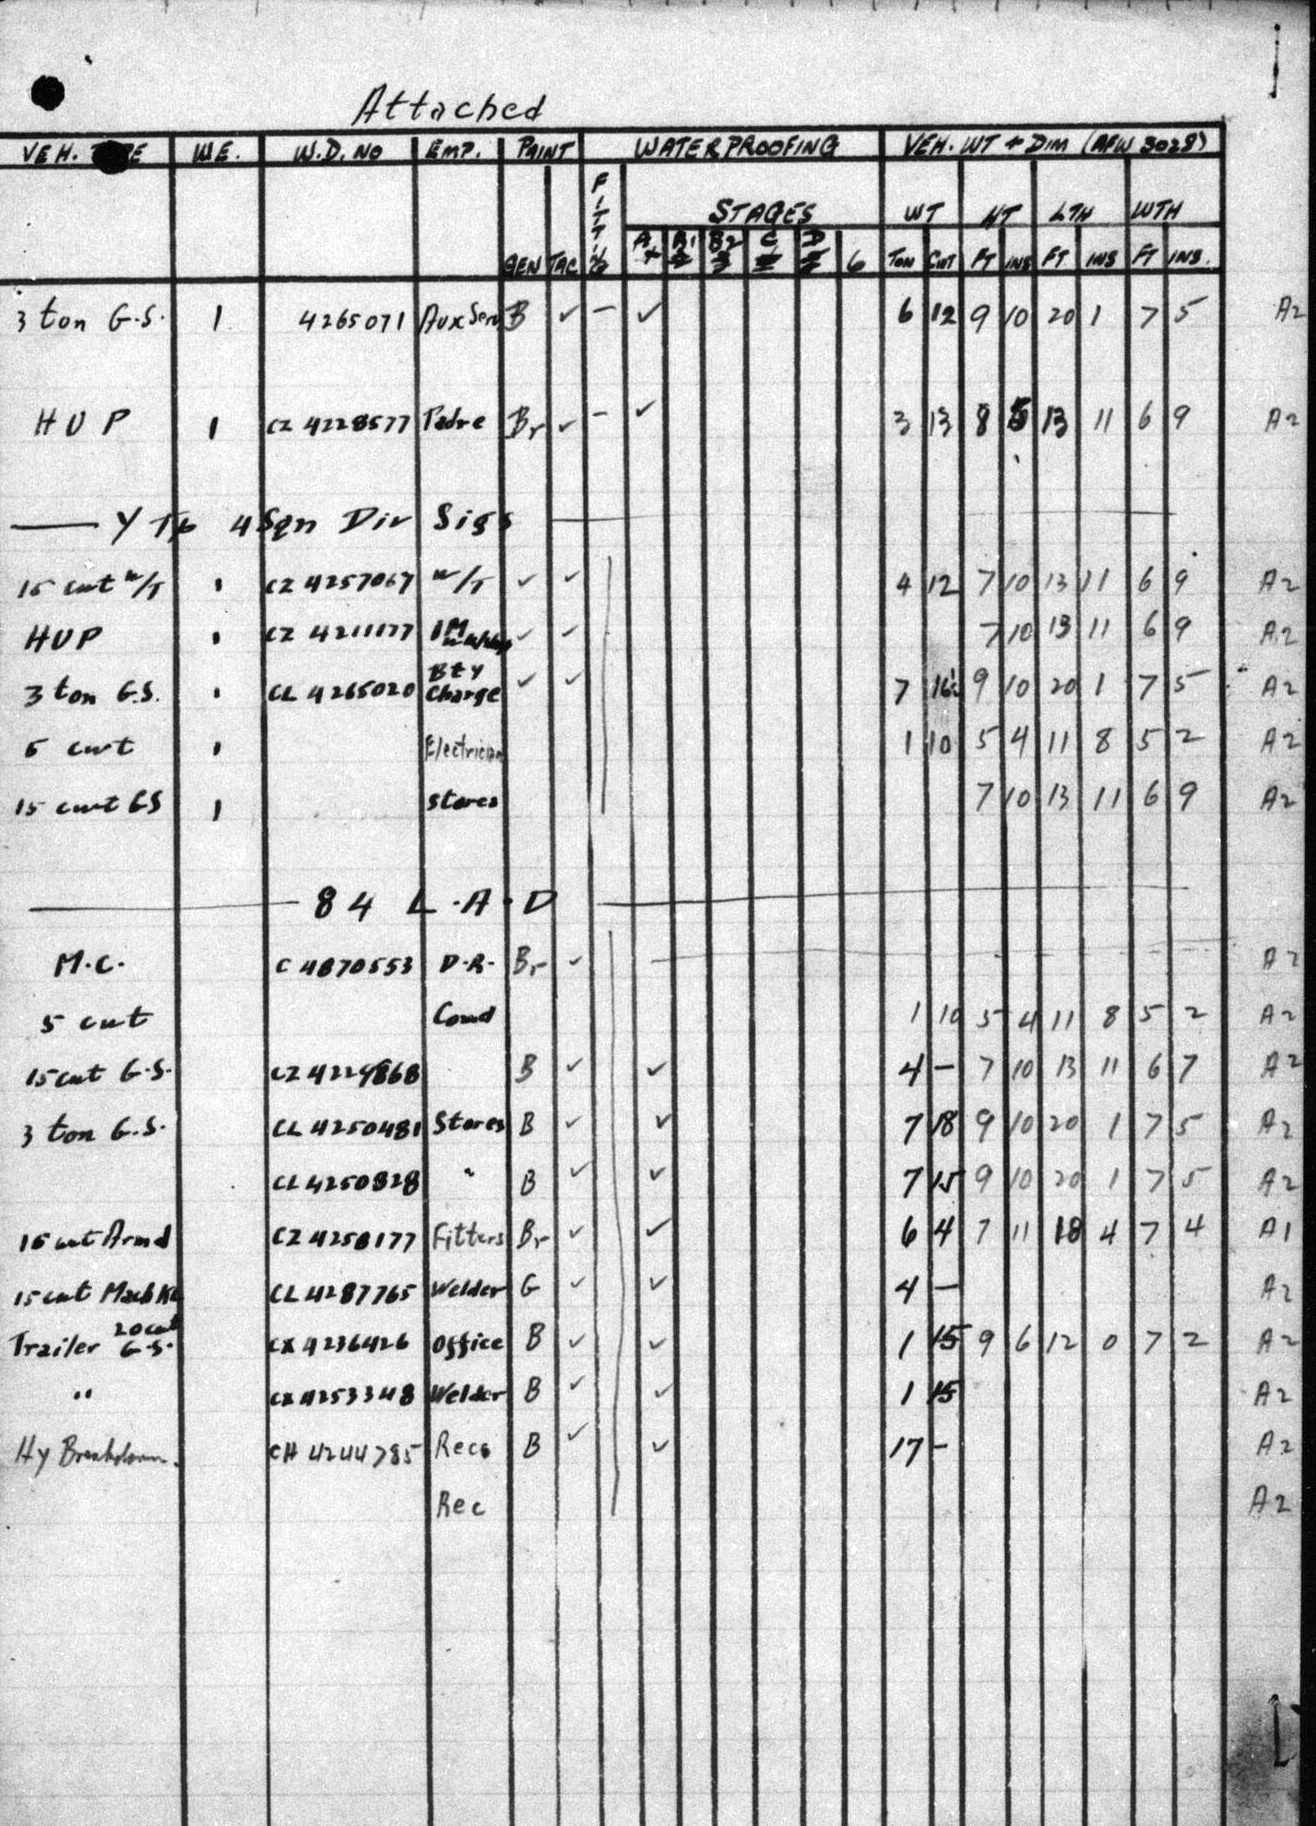 Attached
VEH. TYPE W.E. W.D. NO EMP. PAINT WATERPROOFING VEH. WT + DIM (AFW 3028)
FITTING STAGES WT HT LTH WTH
GEN TAC A B1 B2 C D 6 TON CWT FT INS FT INS FT INS.
3 ton G.S. 1 4265071 Aux Serv B ✓ - ✓ 6 12 9 10 20 1 7 5 A2
HUP 1 CZ 4228577 Padre Br ✓ - ✓ 3 13 8 5 13 11 6 9 A2
Y Tp 4 Sqn Div Sigs
15 cwt W/T 1 CZ 4257067 W/T ✓ ✓ 4 12 7 10 13 11 6 9 A2
HUP 1 CZ 4211177 ✓ ✓ 7 10 13 11 6 9 A2
3 ton G.S. 1 CL 4265020 Bty Charge ✓ ✓ 7 16 9 10 20 1 7 5 A2
5 cwt 1 Electrician 1 10 5 4 11 8 5 2 A2
15 cwt GS 1 Stores 7 10 13 11 6 9 A2
84 L.A.D
M.C. C 4870553 D.R. Br ✓ A2
5 cwt Comd 1 10 5 4 11 8 5 2 A2
15 cwt G.S. B ✓ ✓ 4 - 7 10 13 11 6 7 A2
3 ton G.S. CL 4250481 Stores B ✓ ✓ 7 18 9 10 20 1 7 5 A2
CL 4250828 " B ✓ ✓ 7 15 9 10 20 1 7 5 A2
15 cwt Armd CZ 4258177 Fitters Br ✓ ✓ 6 4 7 11 18 4 7 4 A1
15 cwt Mach CL 4287765 Welder G ✓ ✓ 4 - A2
Trailer 20 cwt G.S. CX 4236426 Office B ✓ ✓ 1 15 9 6 12 0 7 2 A2
" CX 4253348 Welder B ✓ ✓ 1 15 A2
Hy Breakdown. CH 4244785 Rec B ✓ ✓ 17 - A2
Rec A2